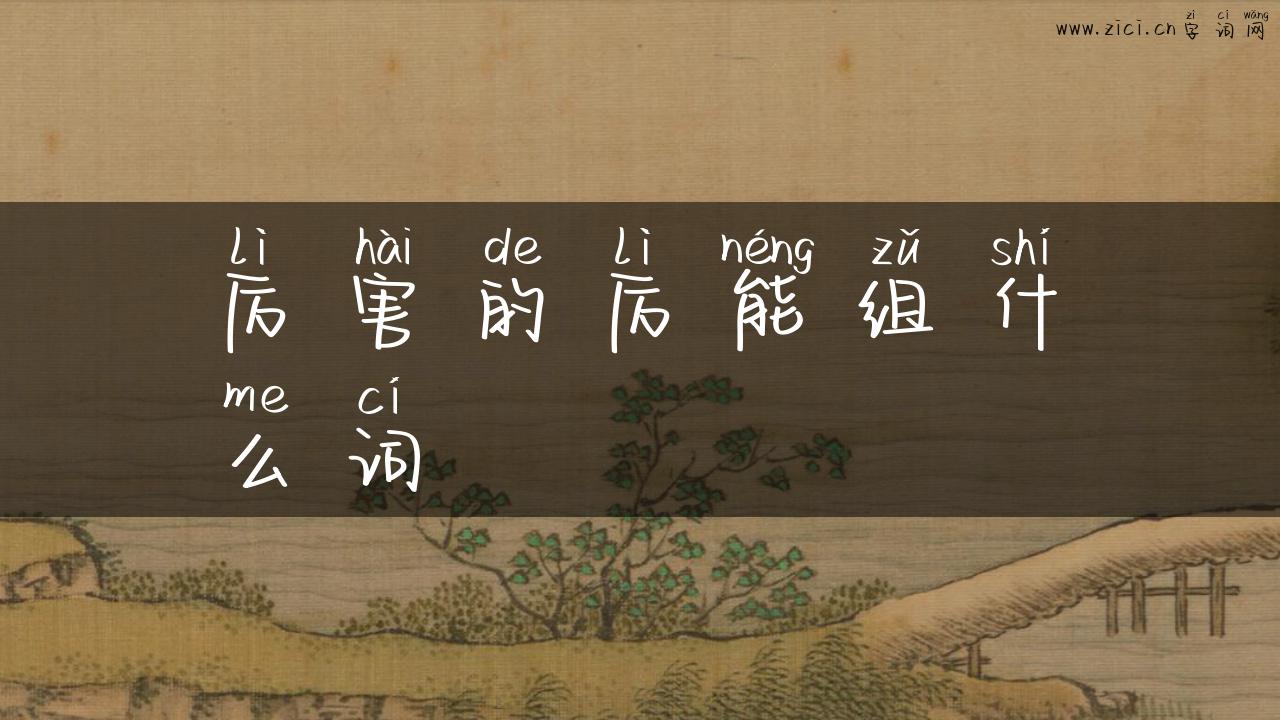 zì cí wǎng
www.zici.cn 字 词 网
lì hài de lì néng zǔ shí
厉 害 的 厉 能 组 什
me cí
么 词